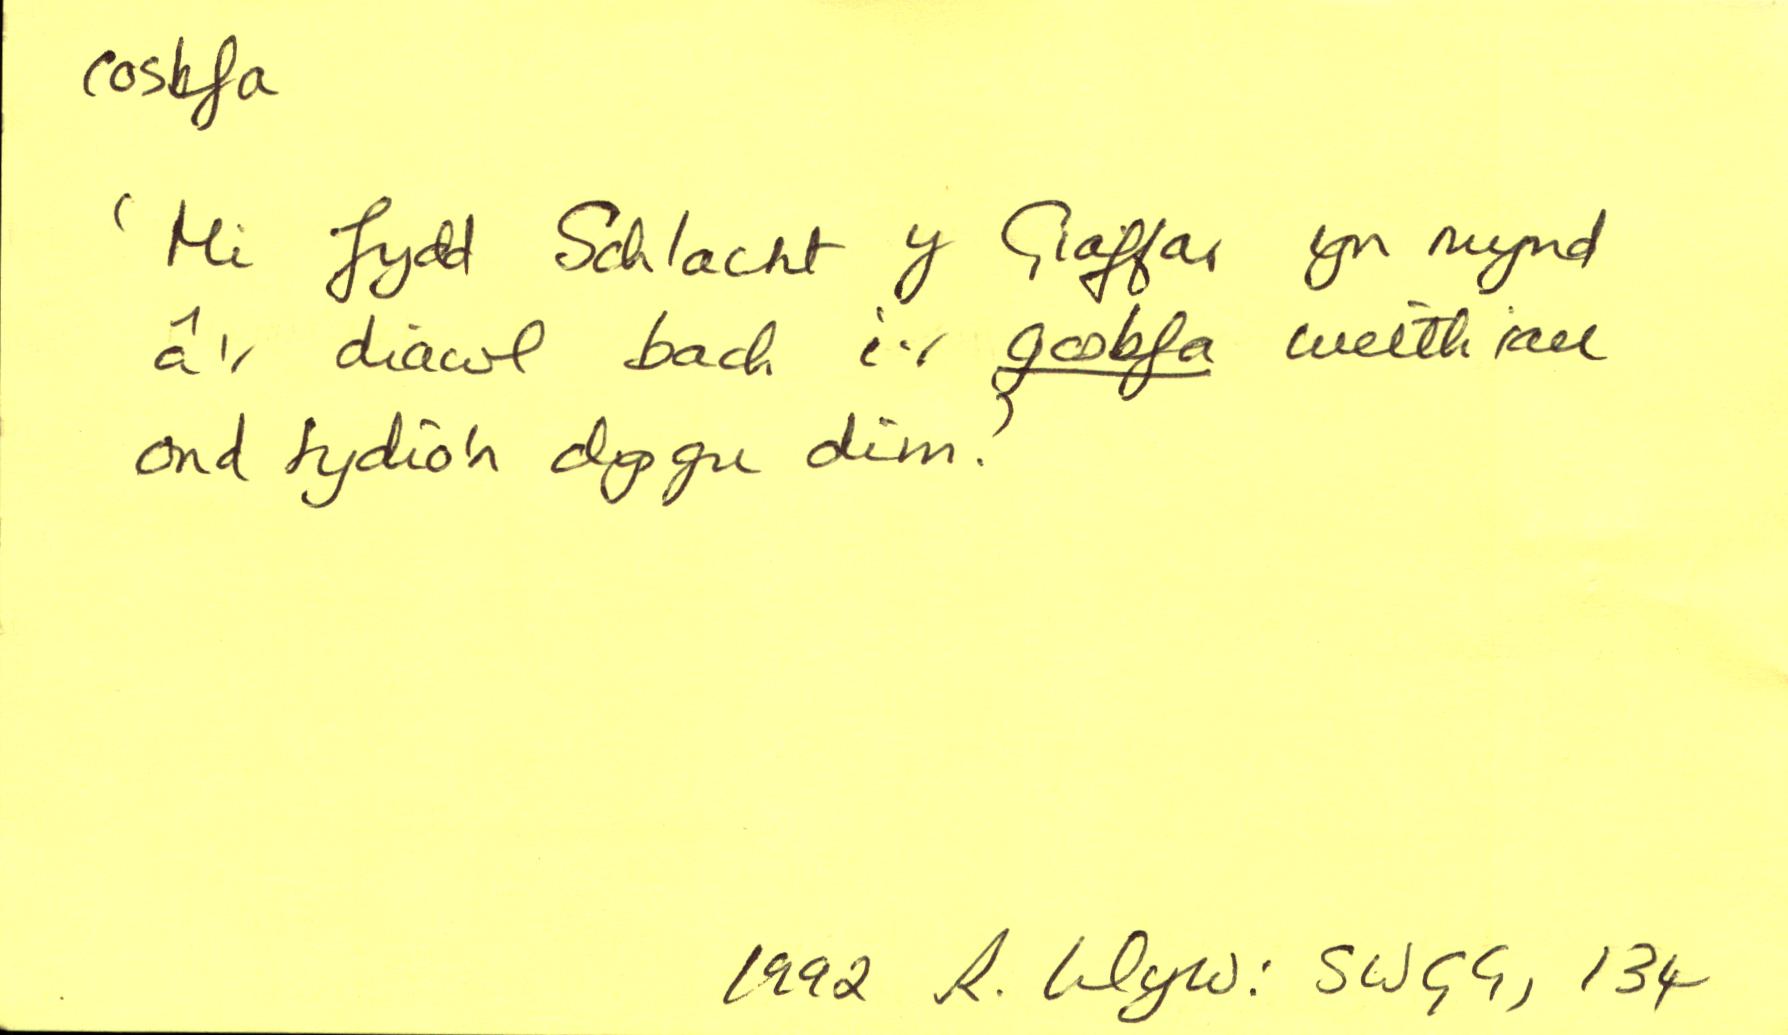 cosbfa
'Mi fydd Schlacht y Giaffar yn mynd
â'r diawl bach i'r gosbfa weithiau
ond tydio'n dysgu dim.'
1992 R. Wlyw: SWGG, 134